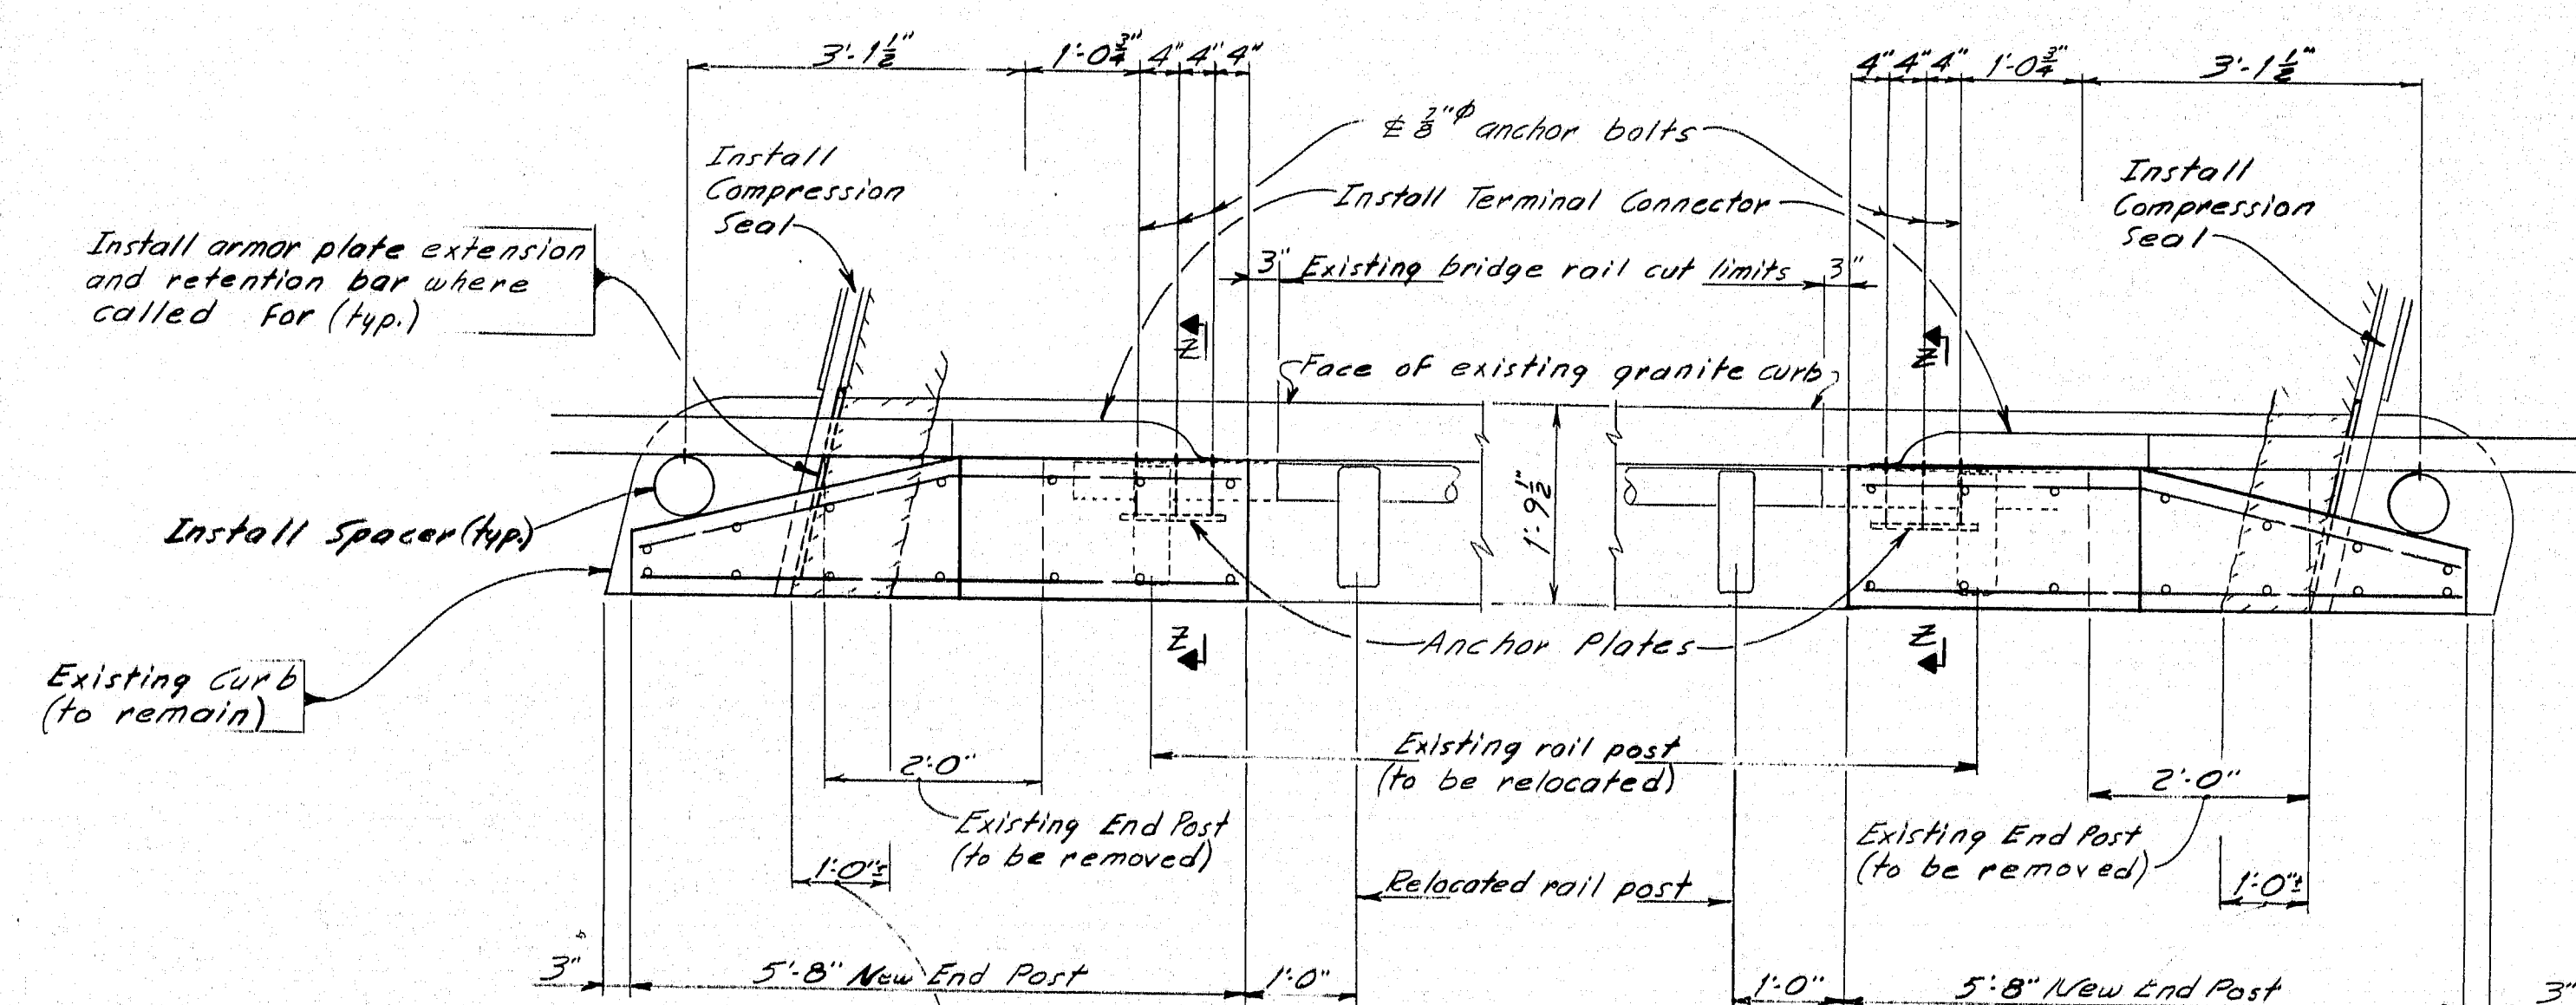 3'-1 1/2" 1'-0 3/4" 4" 4" 4"
4" 4" 4" 1'-0 3/4" 3'-1 1/2"
℄ 7/8"φ anchor bolts
Install
Compression
Seal
Install
Compression
Seal
Install Terminal Connector
Install armor plate extension
and retention bar where
called for (typ.)
3" Existing bridge rail cut limits 3"
Z Z
Face of existing granite curb
1'-9 1/2"
Install Spacer (typ.)
Z Z
Anchor Plates
Existing Curb
(to remain)
Existing rail post
(to be relocated)
2'-0"
2'-0"
Existing End Post
(to be removed)
Existing End Post
(to be removed)
1'-0"±
Relocated rail post
1'-0"±
3" 5'-8" New End Post 1'-0"
1'-0" 5'-8" New End Post 3"